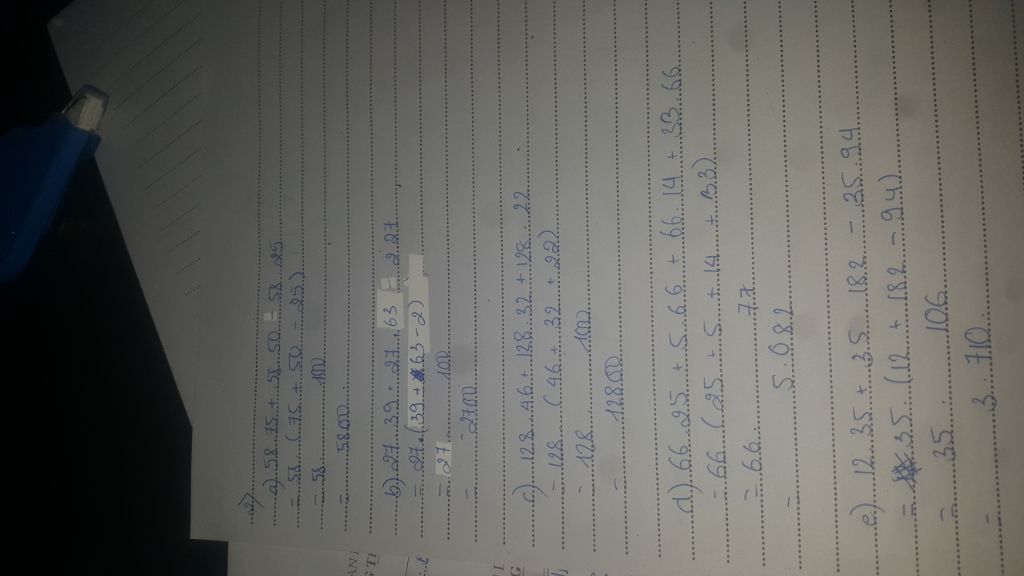 2)
a) 58 . 75 + 58 . 50 - 58 . 25
= 58 . (75 + 50 - 25)
= 58 . 100
= 5800
b) 27 . 39 + 27 . 63 - 2 . 27
= 27 . (39 + 63 - 2)
= 27 . 100
= 2700
c) 128 . 46 + 128 . 32 + 128 . 22
= 128 . (46 + 32 + 22)
= 128 . 100
= 12800
d) 66 . 25 + 5 . 66 + 66 . 14 + 33 . 66
= 66 (25 + 5 + 14 + 33)
= 66 . 77
= 5.082
e) 12 . 35 + 35 . 182 - 35 . 94
= 35 . (12 + 182 - 94)
= 35 . 106
= 3.710